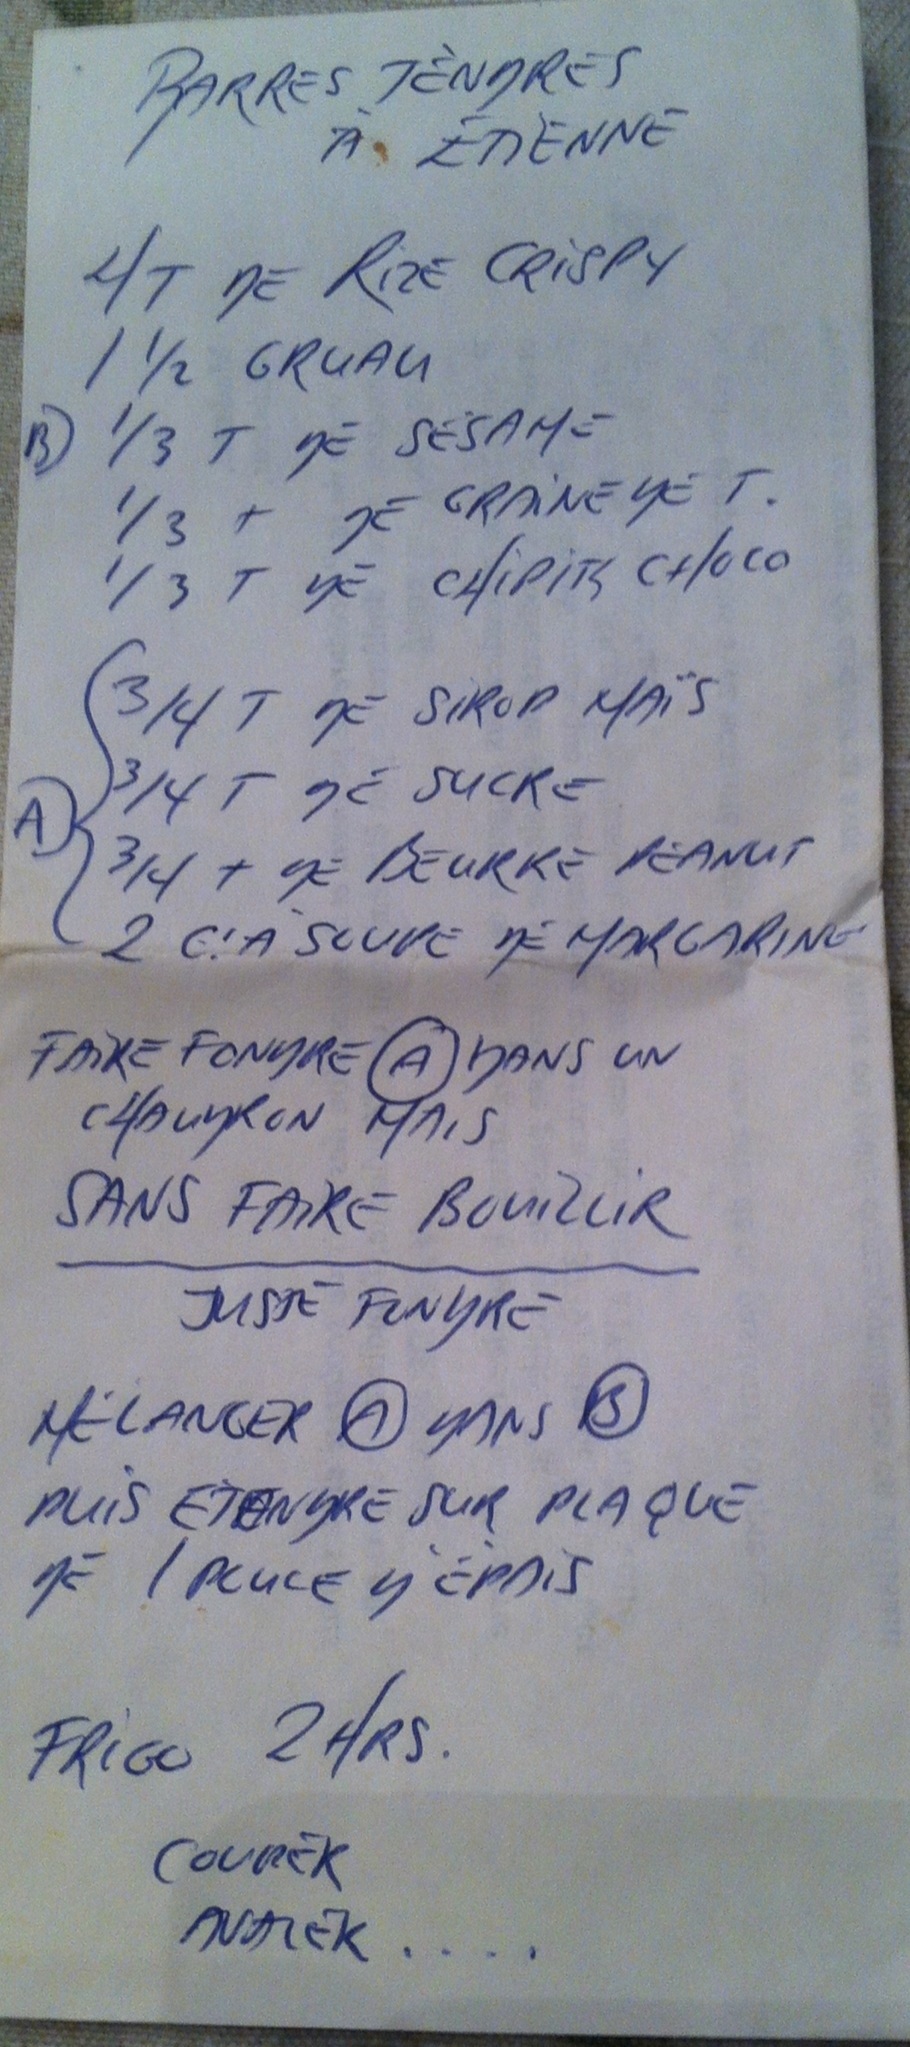 BARRES TENDRES
À ÉTIENNE
4 T DE RIZE CRISPY
1 1/2 GRUAU
B) 1/3 T DE SESAME
1/3 T DE GRAINE DE T.
1/3 T DE CHIPITS CHOCO
3/4 T DE SIROP MAÏS
3/4 T DE SUCRE
A) 3/4 T DE BEURRE PEANUT
2 C. À SOUPE DE MARGARINE
FAIRE FONDRE A DANS UN
CHAUDRON MAIS
SANS FAIRE BOUILLIR
JUSTE FONDRE
MÉLANGER A DANS B
PUIS ÉTENDRE SUR PLAQUE
DE 1 POUCE D'ÉPAIS
FRIGO 2 HRS.
COUPER
AVALER ....